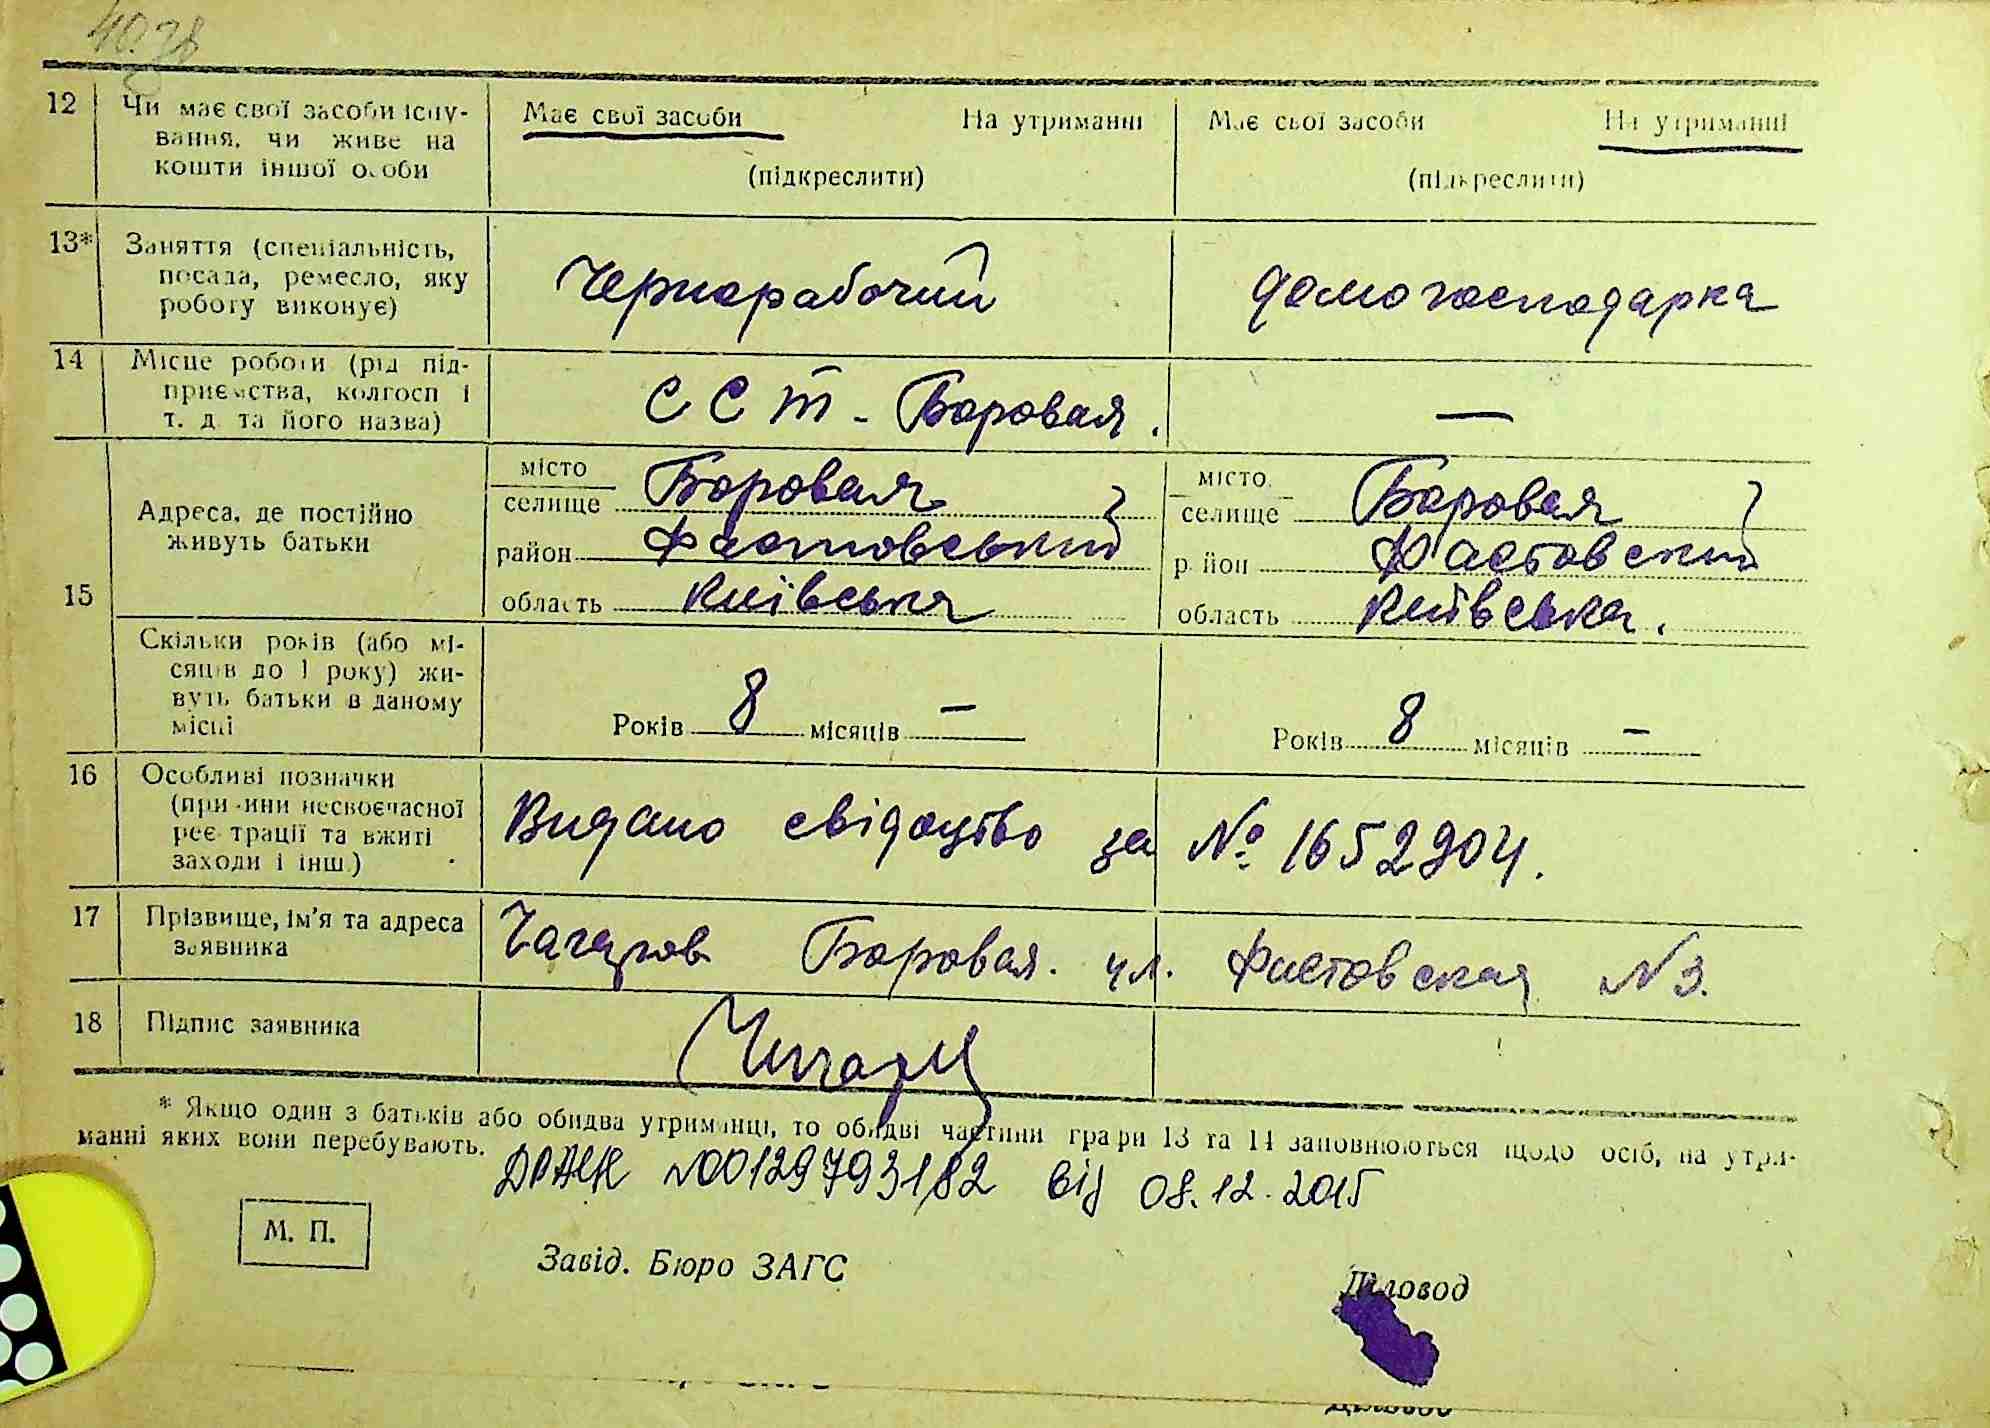 12 Чи має свої засоби існу-
вання, чи живе на
кошти іншої особи
Має свої засоби На утриманні
(підкреслити)
Має свої засоби На утриманні
(підкреслити)
13* Заняття (спеціальність,
посада, ремесло, яку
роботу виконує)
Чернорабочий
домогосподарка
14 Місце роботи (рід під-
приємства, колгосп і
т. д. та його назва)
ССТ - Боровая.
—
15
Адреса, де постійно
живуть батьки
місто
селище Боровая
район Фастовський
область Київська
місто
селище Боровая
район Фастовский
область Київська.
Скільки років (або мі-
сяців до 1 року) жи-
вуть батьки в даному
місці
Років 8 місяців —
Років 8 місяців —
16 Особливі позначки
(причини несвоєчасної
реєстрації та вжиті
заходи і інш.)
Видано свідоцтво за № 1652904.
17 Прізвище, ім'я та адреса
заявника
Боровая. ул. Фастовская N 3.
18 Підпис заявника
* Якщо один з батьків або обидва утриманці, то обидві частини графи 13 та 14 заповнюються щодо осіб, на утри-
манні яких вони перебувають.
ДРАЦС №00129793182 від 08.12.2015
М. П.
Завід. Бюро ЗАГС
Діловод